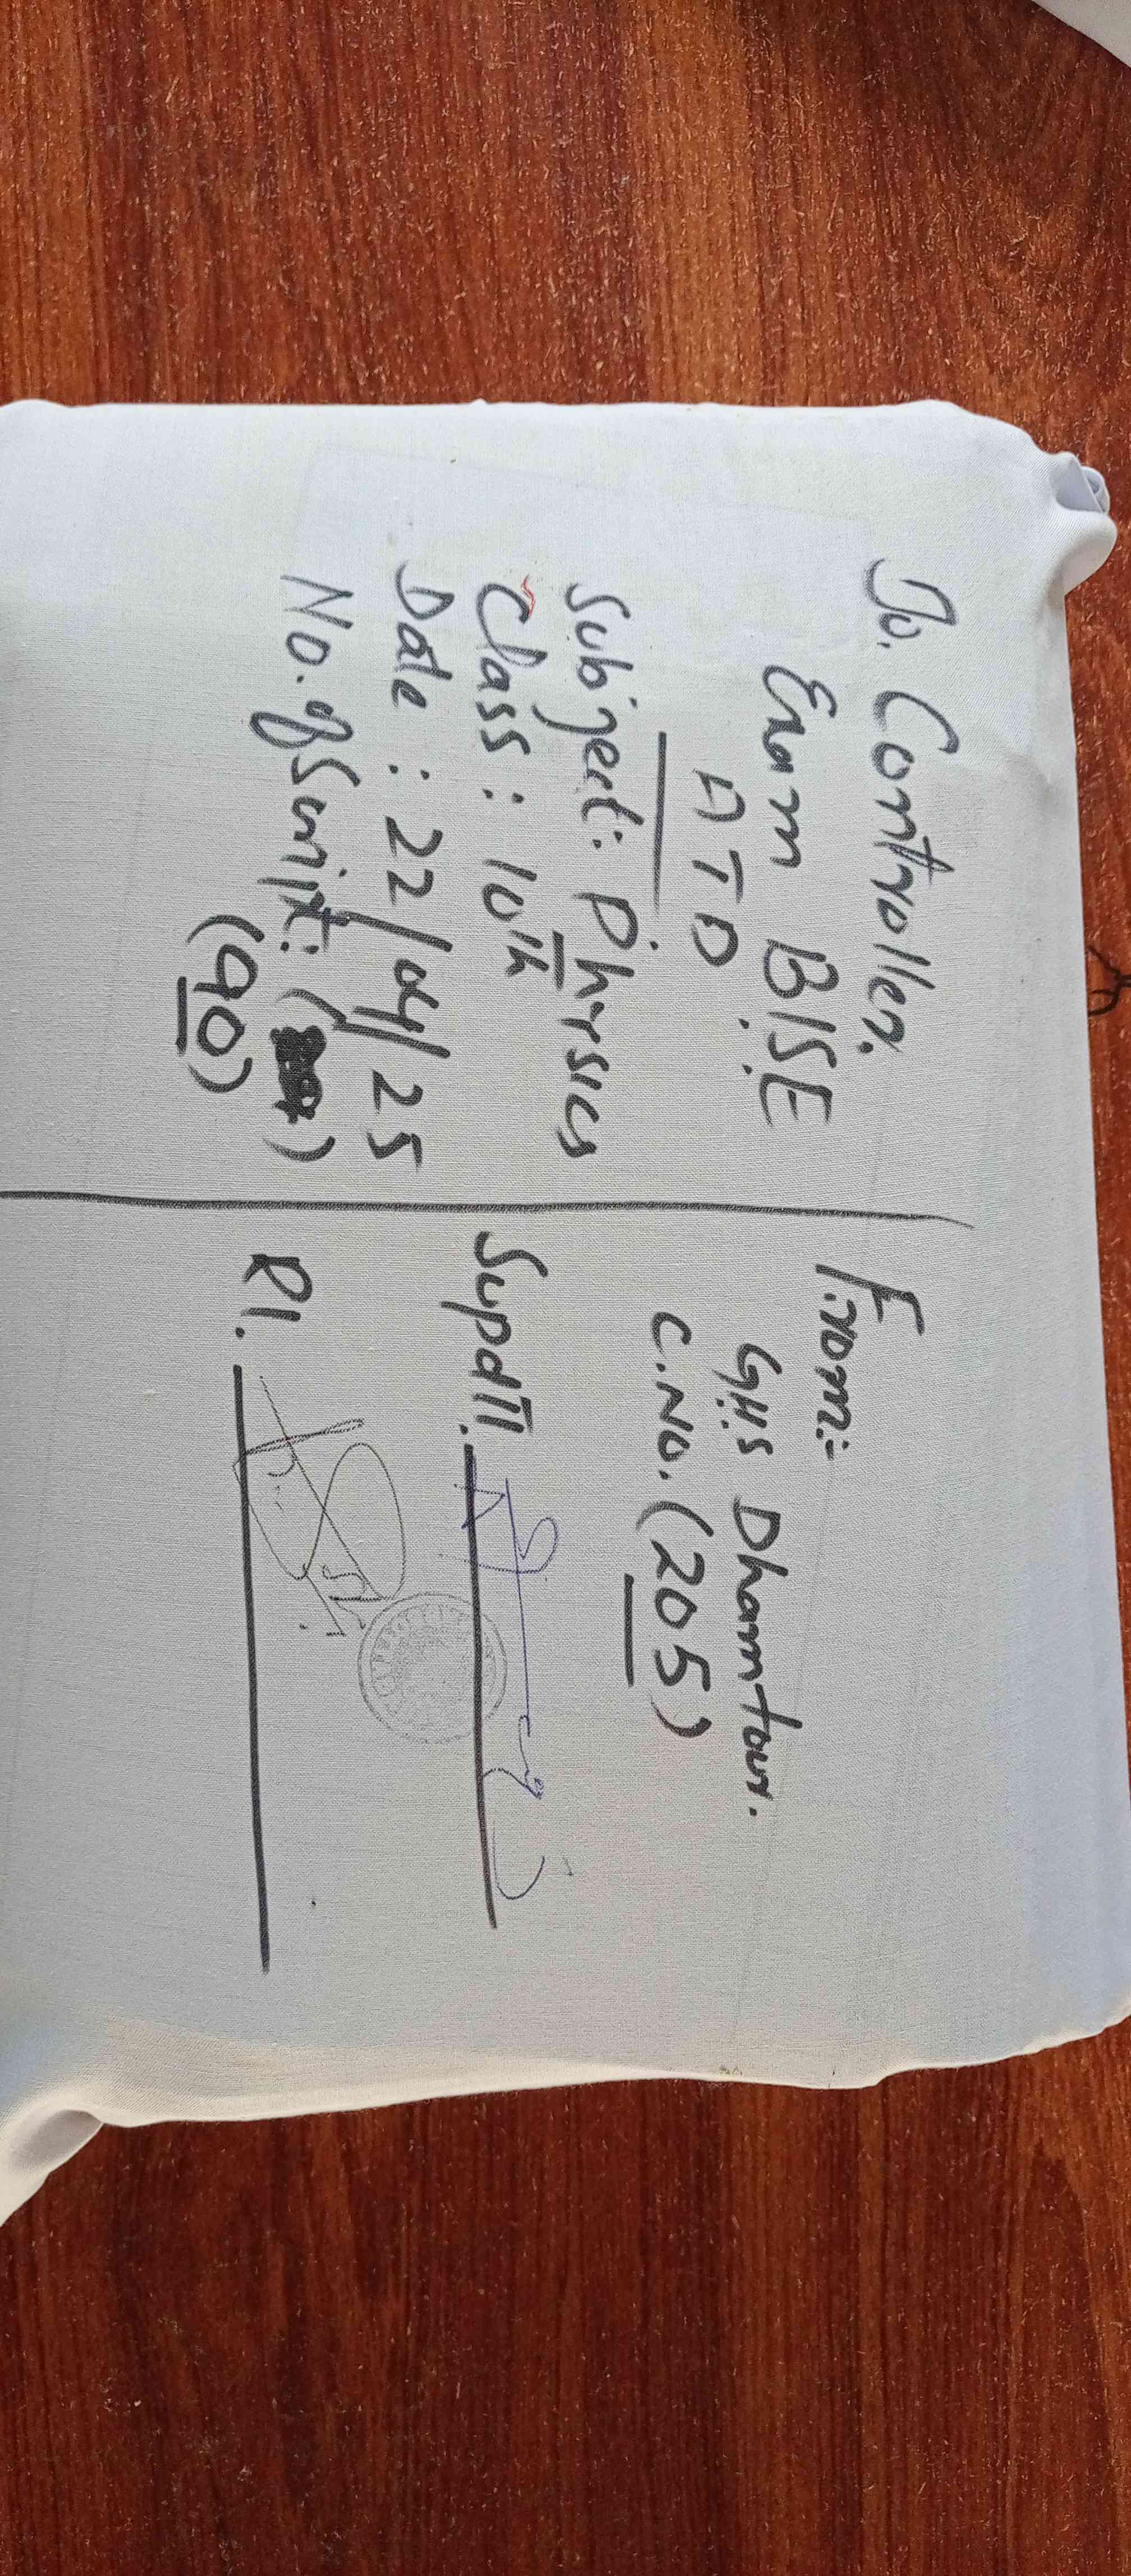 To. Controller.
Exam B.I.S.E
ATD
Subject: Physics
Class: 10th
Date: 22/04/25
No. of Script: ( )
(90)
From:-
GHS Dhamtour.
C.No. (205)
Supdtt.
RI.